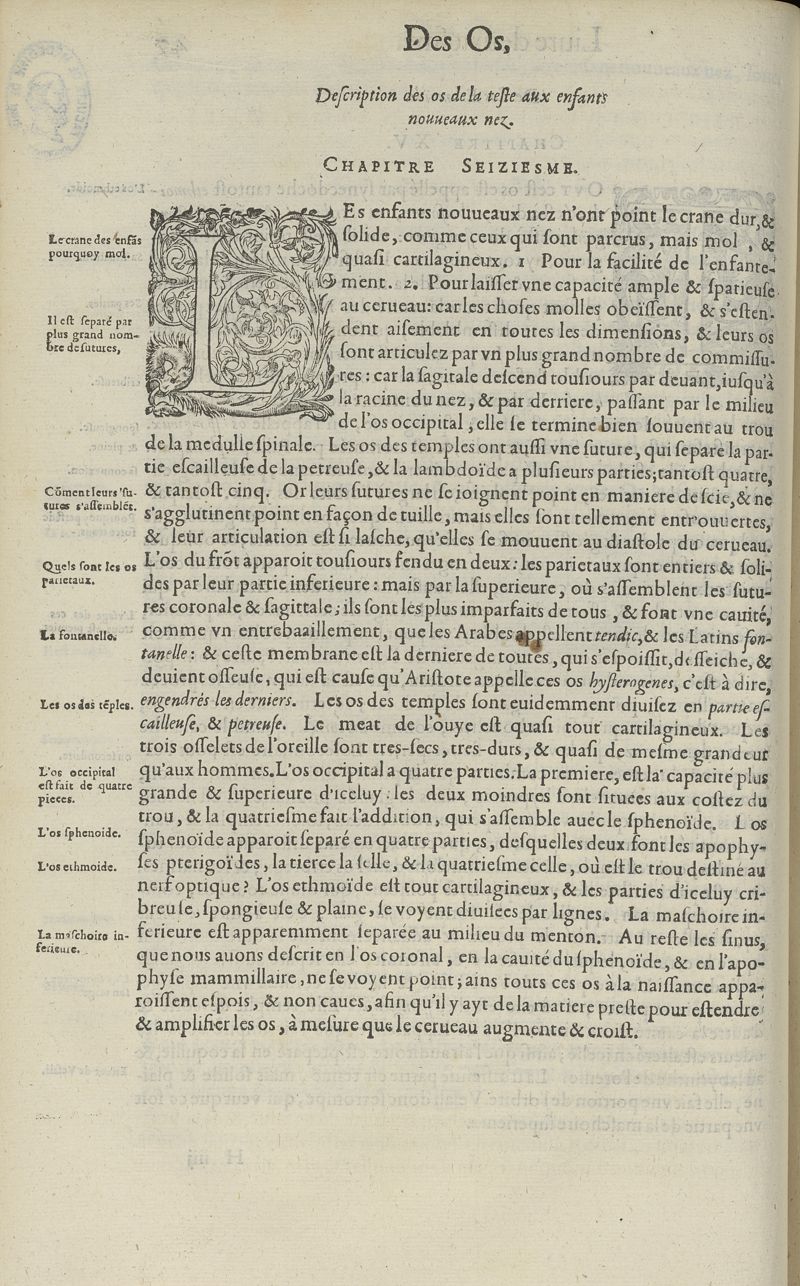 Des Os,
Deſcription des os de la teſte aux enfants
nouueaux nez.
CHAPITRE SEIZIESME.
LEs enfants nouueaux nez n'ont point le crane dur, &
ſolide, comme ceux qui ſont parcrus, mais mol, &
quaſi cartilagineux. 1 Pour la facilité de l'enfante-
ment. 2. Pour laiſſer vne capacité ample & ſpatieuſe
au cerueau: car les choſes molles obeïſſent, & s'eſten-
dent aiſement en toutes les dimenſions, & leurs os
ſont articulez par vn plus grand nombre de commiſſu-
res: car la ſagitale deſcend touſiours par deuant, iuſqu'à
la racine du nez, & par derriere, paſſant par le milieu
de l'os occipital, elle ſe termine bien ſouuent au trou
de la medulle ſpinale. Les os des temples ont auſſi vne ſuture, qui ſepare la par-
tie eſcailleuſe de la petreuſe, & la lambdoïde a pluſieurs parties; tantoſt quatre,
& tantoſt cinq. Or leurs ſutures ne ſe ioignent point en maniere de ſcie, & ne
s'agglutinent point en façon de tuille, mais elles ſont tellement entr'ouuertes,
& leur articulation eſt ſi laſche, qu'elles ſe mouuent au diaſtole du cerueau.
L'os du frõt apparoit touſiours fendu en deux: les parietaux ſont entiers & ſoli-
des par leur partie inferieure: mais par la ſuperieure, où s'aſſemblent les ſutu-
res coronale & ſagittale; ils ſont les plus imparfaits de tous, & font vne cauité,
comme vn entrebaaillement, que les Arabes appellent tendic, & les Latins fon-
tanelle: & ceſte membrane eſt la derniere de toutes, qui s'eſpoiſſit, deſſeiche, &
deuient oſſeuſe, qui eſt cauſe qu'Ariſtote appelle ces os hyſterogenes, c'eſt à dire,
engendrés les derniers. Les os des temples ſont euidemment diuiſez en partie eſ-
cailleuſe, & petreuſe. Le meat de l'ouye eſt quaſi tout cartilagineux. Les
trois oſſelets de l'oreille ſont tres-ſecs, tres-durs, & quaſi de meſme grandeur
qu'aux hommes. L'os occipital a quatre parties. La premiere, eſt la capacité plus
grande & ſuperieure d'iceluy: les deux moindres ſont ſituees aux coſtez du
trou, & la quatrieſme fait l'addition, qui s'aſſemble auec le ſphenoïde. L os
ſphenoïde apparoit ſeparé en quatre parties, deſquelles deux font les apophy-
ſes pterigoïdes, la tierce la ſelle, & la quatrieſme celle, où eſt le trou deſtiné au
nerf optique? L'os ethmoïde eſt tout cartilagineux, & les parties d'iceluy cri-
breuſe, ſpongieuſe & plaine, ſe voyent diuiſees par lignes. La maſchoire in-
ferieure eſt apparemment ſeparée au milieu du menton. Au reſte les ſinus,
que nous auons deſcrit en l'os coronal, en la cauité du ſphenoïde, & en l'apo-
phyſe mammillaire, ne ſe voyent point; ains touts ces os à la naiſſance appa-
roiſſent eſpois, & non caues, afin qu'il y ayt de la matiere preſte pour eſtendre
& amplifier les os, à meſure que le cerueau augmente & croiſt.
Le crane des enfãs
pourquoy mol.
Il eſt ſeparé par
plus grand nom-
bre de ſutures,
Cõment leurs ſu-
tures s'aſſemblẽt.
Quels ſont les os
parietaux.
La fontanelle.
Les os des tẽples.
L'os occipital
eſt fait de quatre
pieces.
L'os ſphenoide.
L'os ethmoide.
La maſchoire in-
ferieure.